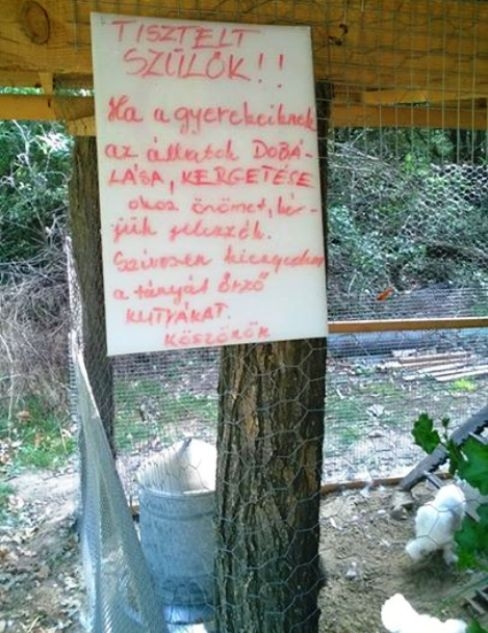 TISZTELT
SZÜLŐK!!
Ha a gyerekeiknek
az állatok DOBÁ-
LÁSA, KERGETÉSE
okoz örömet, kér-
jük jelezzék.
Szívesen kiengedem
a tanyát őrző
KUTYÁKAT.
KÖSZÖNÖM